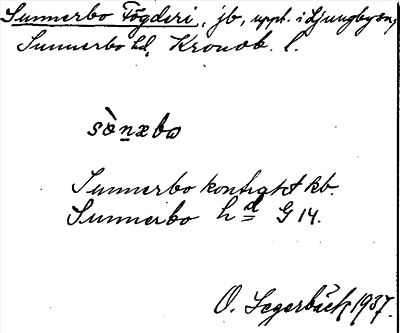 Sunnerbo Fögderi, jb, uppt. i Ljungby sn,
Sunnerbo hd, Kronob. l.
sὸnxbω
Sunnerbo kontrakt kb.
Sunnerbo hd G 14.
O. Segerbäck 1937.